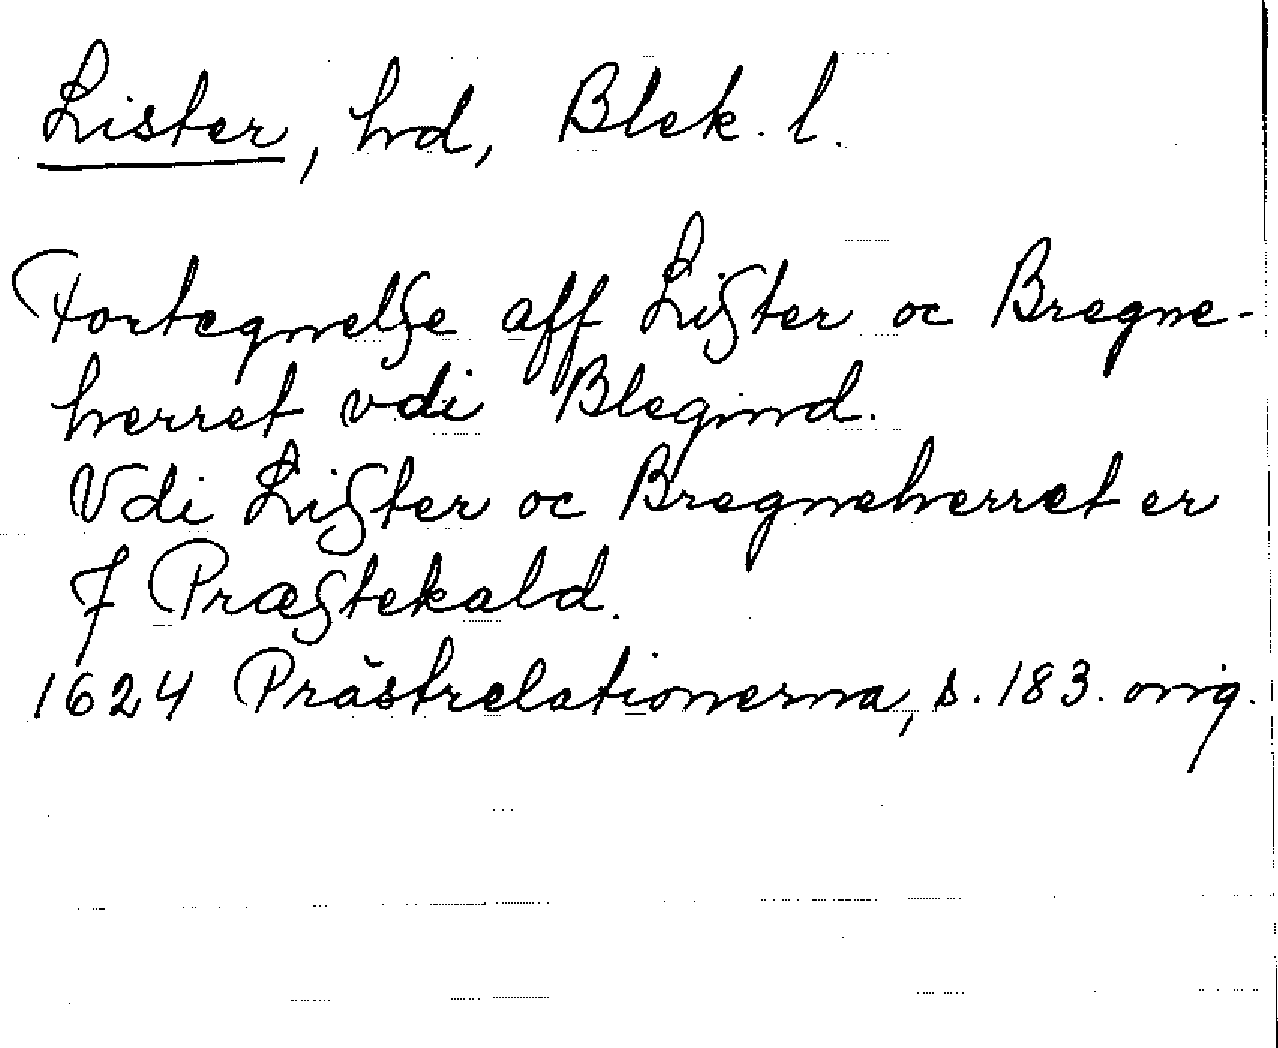 Lister, hd, Blek. l.
Fortegnelſe aff Liſter oc Bregne-
herret vdi Blegind.
Vdi Liſter oc Bregneherret er
7 Præſtekald.
1624 Prästrelationerna, s. 183. orig.